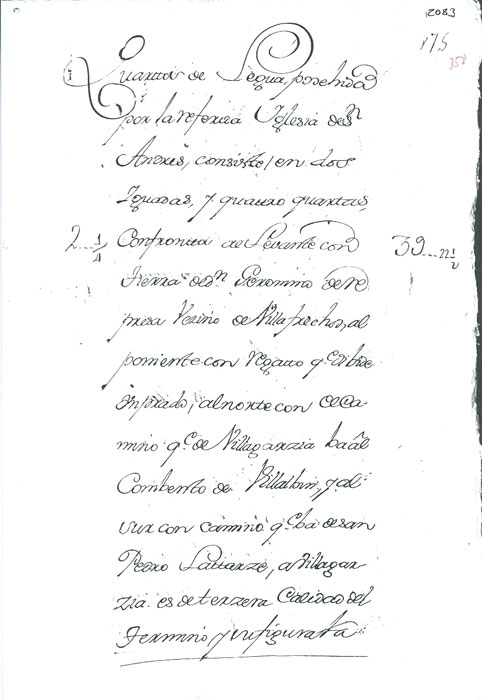 2083
175
358
Quarta de Legua posehida
por la referida Yglesia de Sn
Andres, consiste en dos
Yguadas, y quatro quartas,
2 1/4 Confronta a Levante con 39 m 1/2
tierra de Dn Geronimo de
presa Vezino de Villafrechos, al
poniente con regato qe
un prado, al norte con el Ca
mino qe de Villagarzia ba al
Combento de Villalbin, y al
sur con camino qe ba de San
Pedro Lattarze, a Villagar
zia. es de terzera Calidad del
termino y su figura es la